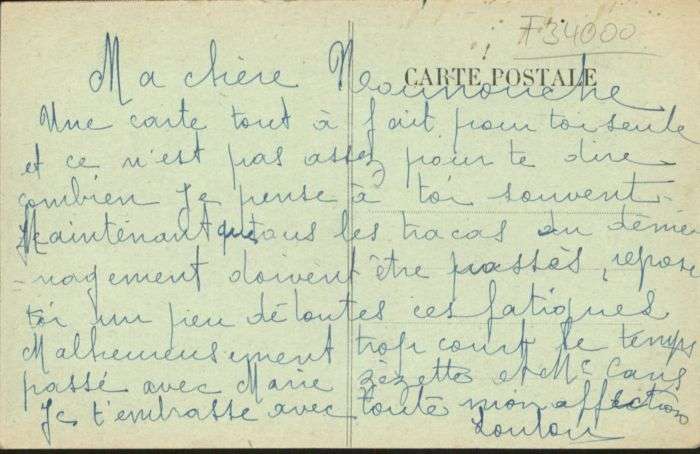 F34000
CARTE POSTALE
Ma chère Nounouche
Une carte tout à fait pour toi seule
et ce n'est pas assez pour te dire
combien je pense à toi souvent.
Maintenant que tous les tracas du démé
-nagement doivent être passés, repose
toi un peu de toutes ces fatigues
Malheureusement trop court le temps
passé avec Marie zézette et
Je t'embrasse avec toute mon affection
Loulou